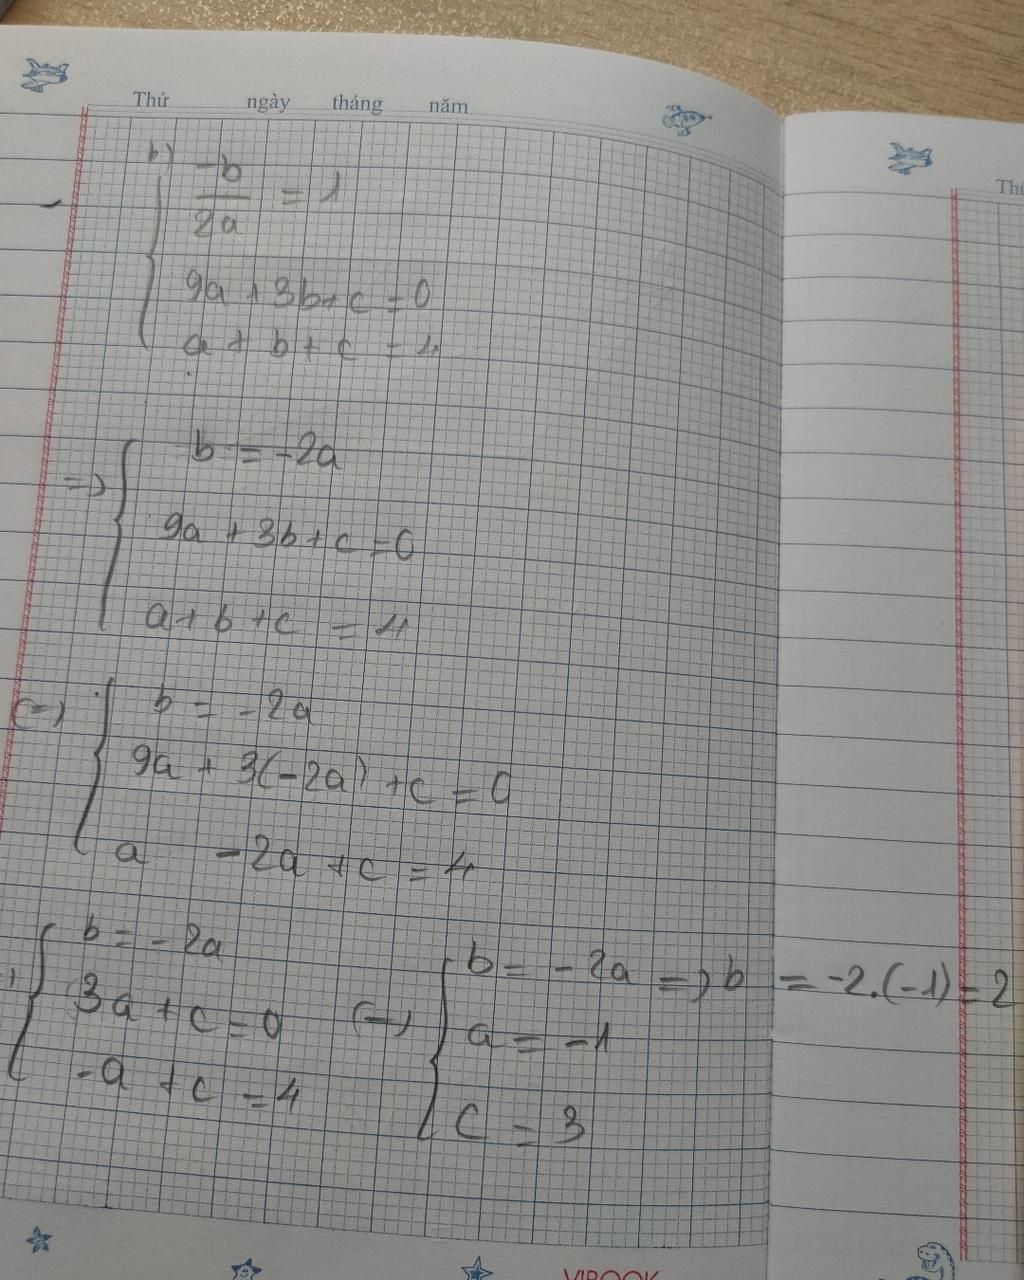 Thứ ngày tháng năm
b)
-b/2a = 1
9a + 3b + c = 0
a + b + c = 4
=> b = -2a
9a + 3b + c = 0
a + b + c = 4
(=) b = -2a
9a + 3(-2a) + c = 0
a -2a + c = 4
b = -2a
3a + c = 0
-a + c = 4
(=) b = -2a => b = -2.(-1) = 2
a = -1
c = 3
VIBOOK